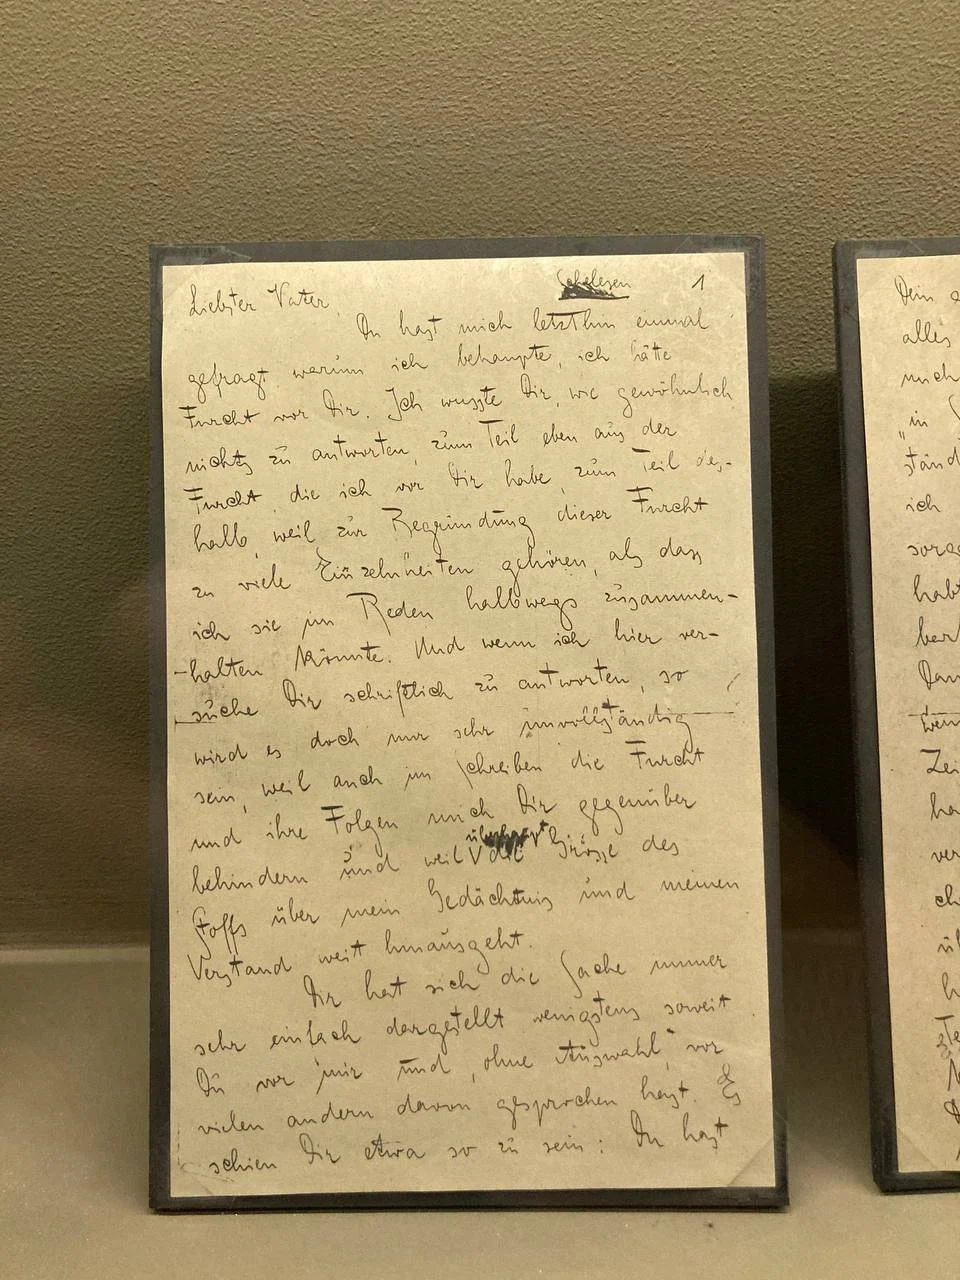 Schelesen 1
Liebster Vater
Du hast mich letzthin einmal
gefragt, warum ich behaupte, ich hätte
Furcht vor Dir. Ich wusste Dir, wie gewöhnlich
nichts zu antworten, zum Teil eben aus der
Furcht, die ich vor Dir habe, zum Teil des-
halb, weil zur Begründung dieser Furcht
zu viele Einzelnheiten gehören, als dass
ich sie im Reden halbwegs zusammen-
halten könnte. Und wenn ich hier ver-
suche Dir schriftlich zu antworten, so
wird es doch nur sehr unvollständig
sein, weil auch im Schreiben die Furcht
und ihre Folgen mich Dir gegenüber
behindern und weil die Grösse des
Stoffs über mein Gedächtnis und meinen
Verstand weit hinausgeht.
Dir hat sich die Sache immer
sehr einfach dargestellt wenigstens soweit
Du vor mir und, ohne Auswahl, vor
vielen andern davon gesprochen hast. Es
schien Dir etwa so zu sein: Du hast
Dein
alles
mich
„in
ständ
ich
sorg
habt
Dan
wen
Zei
ha
ver